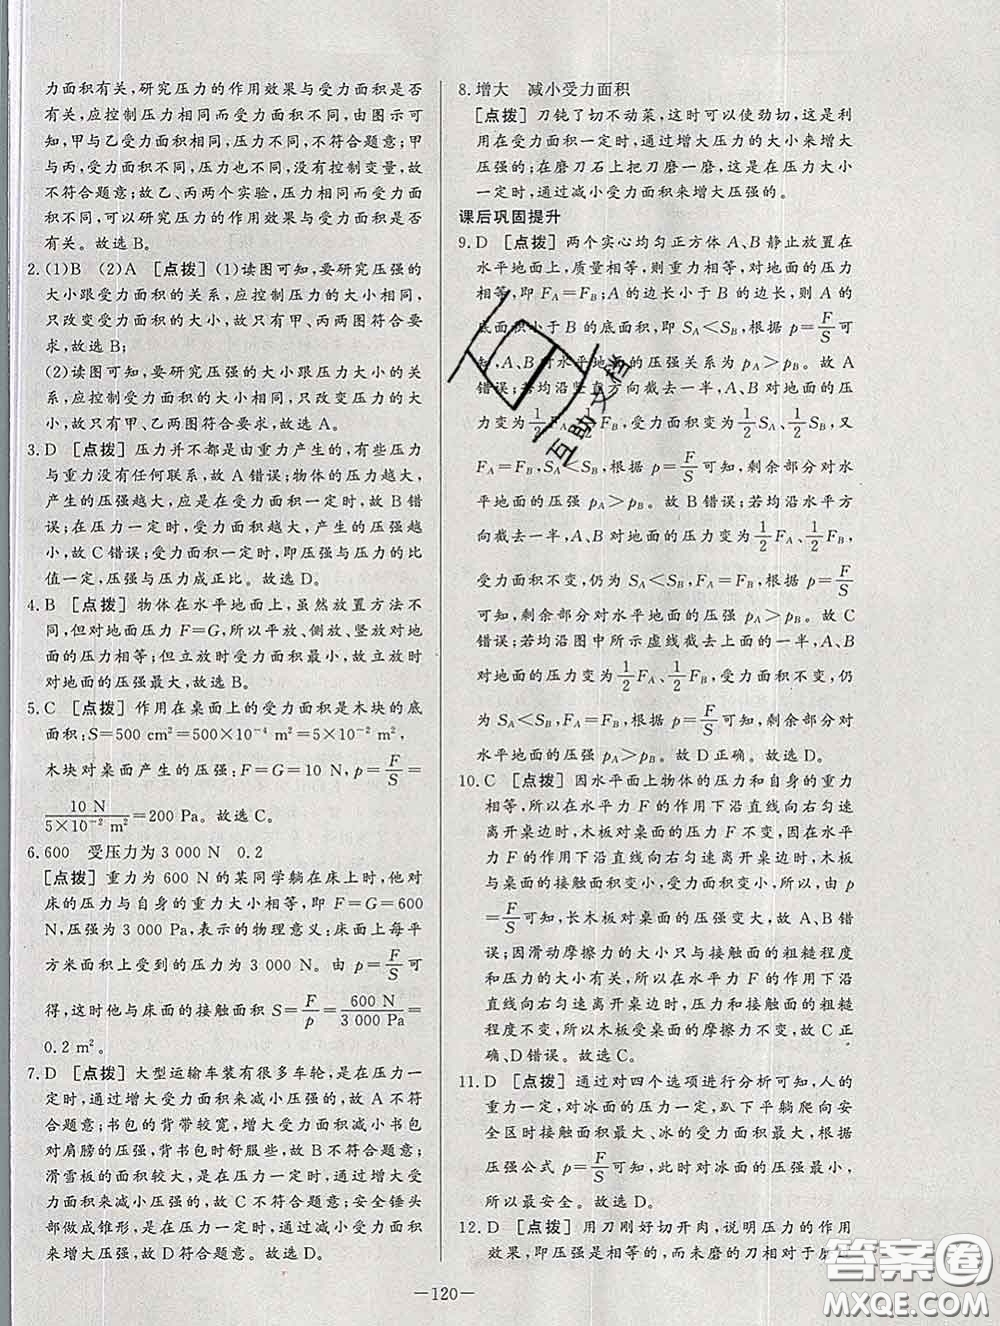 力面积有关,研究压力的作用效果与受力面积是否
有关,应控制压力相同而受力面积不同,由图示可
知,甲与乙受力面积相同,压力不同,不符合题意;甲
与丙,受力面积不同,压力也不同,没有控制变量,故
不符合题意;故乙、丙两个实验,压力相同,受力面积
不同,可以研究压力的作用效果与受力面积是否
有关。故选 B。
2.(1)B (2)A [点拨] (1)读图可知,要研究压强的
大小跟受力面积的关系,应控制压力的大小相同,
只改变受力面积的大小,故只有甲、丙两图符合要
求,故选 B;
(2)读图可知,要研究压强的大小跟压力大小的关
系,应控制受力面积的大小相同,只改变压力的大
小,故只有甲、乙两图符合要求,故选 A。
3.D [点拨] 压力并不都是由重力产生的,有些压力
与重力没有任何联系,故 A 错误;物体的压力越大,
产生的压强越大,应是在受力面积一定时,故 B 错
误;在压力一定时,受力面积越大,产生的压强越
小,故 C 错误;受力面积一定时,即压强与压力的比
值一定,压强与压力成正比。故选 D。
4.B [点拨] 物体在水平地面上,虽然放置方法不
同,但对地面压力 F=G,所以平放、侧放、竖放对地
面的压力相等;但立放时受力面积最小,故立放时
对地面的压强最大,故选 B。
5.C [点拨] 作用在桌面上的受力面积是木块的底
面积:S=500 cm²=500×10⁻⁴ m²=5×10⁻² m²,
木块对桌面产生的压强:F=G=10 N,p=F/S=
10 N/(5×10⁻² m²)=200 Pa。故选 C。
6.600 受压力为 3 000 N 0.2
[点拨] 重力为 600 N 的某同学躺在床上时,他对
床的压力与自身的重力大小相等,即 F=G=600
N,压强为 3 000 Pa,表示的物理意义:床面上每平
方米面积上受到的压力为 3 000 N。由 p=F/S 可
得,这时他与床面的接触面积 S=F/p=600 N/3 000 Pa=
0.2 m²。
7.D [点拨] 大型运输车装有很多车轮,是在压力一
定时,通过增大受力面积来减小压强的,故 A 不符
合题意;书包的背带较宽,增大受力面积减小书包
对肩膀的压强,背书包时舒服些,故 B 不符合题意;
滑雪板的面积较大,是在压力一定时,增大受力面
积来减小压强的,故 C 不符合题意;安全锤头
部做成锥形,是在压力一定时,通过减小受力面积
来增大压强,故 D 符合题意。故选 D。
8.增大 减小受力面积
[点拨] 刀钝了切不动菜,这时可以使劲切,这是利
用在受力面积一定时,通过增大压力的大小来增大
压强的;在磨刀石上把刀磨一磨,这是在压力大小
一定时,通过减小受力面积来增大压强的。
课后巩固提升
9.D [点拨] 两个实心均匀正方体 A、B 静止放置在
水平地面上,质量相等,则重力相等,对地面的压力
相等,即 F_A=F_B;A 的边长小于 B 的边长,则 A 的
底面积小于 B 的底面积,即 S_A<S_B,根据 p=F/S可
知,A、B 对水平地面的压强关系为 p_A>p_B。故 A
错误;若均沿竖直方向截去一半,A、B 对地面的压
力变为 1/2 F_A、1/2 F_B,受力面积变为 1/2 S_A、1/2 S_B,又
F_A=F_B,S_A<S_B,根据 p=F/S可知,剩余部分对水
平地面的压强 p_A>p_B。故 B 错误;若均沿水平方
向截去一半,A、B 对地面的压力变为 1/2 F_A、1/2 F_B,
受力面积不变,仍为 S_A<S_B,F_A=F_B,根据 p=F/S
可知,剩余部分对水平地面的压强 p_A>p_B。故 C
错误;若均沿图中所示虚线截去上面的一半,A、B
对地面的压力变为 1/2 F_A、1/2 F_B,受力面积不变,仍
为 S_A<S_B,F_A=F_B,根据 p=F/S可知,剩余部分对
水平地面的压强 p_A>p_B。故 D 正确。故选 D。
10.C [点拨] 因水平面上物体的压力和自身的重力
相等,所以在水平力 F 的作用下沿直线向右匀速
离开桌边时,木板对桌面的压力不变,因在水平
力 F 的作用下沿直线向右匀速离开桌边时,木板
与桌面的接触面积变小,受力面积变小,所以,由 p
=F/S可知,长木板对桌面的压强变大,故 A、B 错
误;因滑动摩擦力的大小只与接触面的粗糙程度
和压力的大小有关,所以在水平力 F 的作用下沿
直线向右匀速离开桌边时,压力和接触面的粗糙
程度不变,所以木板受桌面的摩擦力不变,故 C 正
确、D 错误。故选 C。
11.D [点拨] 通过对四个选项进行分析可知,人的
重力一定,对冰面的压力一定,趴下平躺爬向安
全区时接触面积最大、冰的受力面积最大,根据
压强公式 p=F/S可知,此时对冰面的压强最小,
所以最安全。故选 D。
12.D [点拨] 用刀刚好切开肉,说明压力的作用
效果,即压强是相等的,而未磨的刀相对于磨
互助文档
答案圈
MXQE.COM
—120—